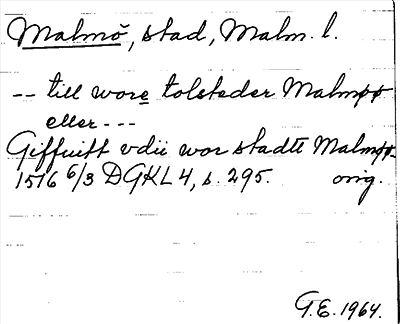 Malmö, stad, Malm. l.
-- till wore tolsteder Malmøø
eller ---
Giffuitt vdii wor stadtt Malmøø
1516 6/3 DGKL 4, s. 295. orig.
G.E. 1964.